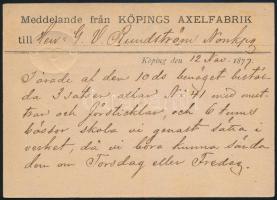 Meddelande från KÖPINGS AXELFABRIK
till Herr G. V. Rundström Norrkpg
Köping den 12 Nov. 1877
Tirade af den 10 ds benäget beställ
da 3 satser axlar N: 41 med mut
trar och försticklar, och 6 tums
bössor skola vi genast sätta i
verket, då vi böra kunna sända
dem om Torsdag eller Fredag.